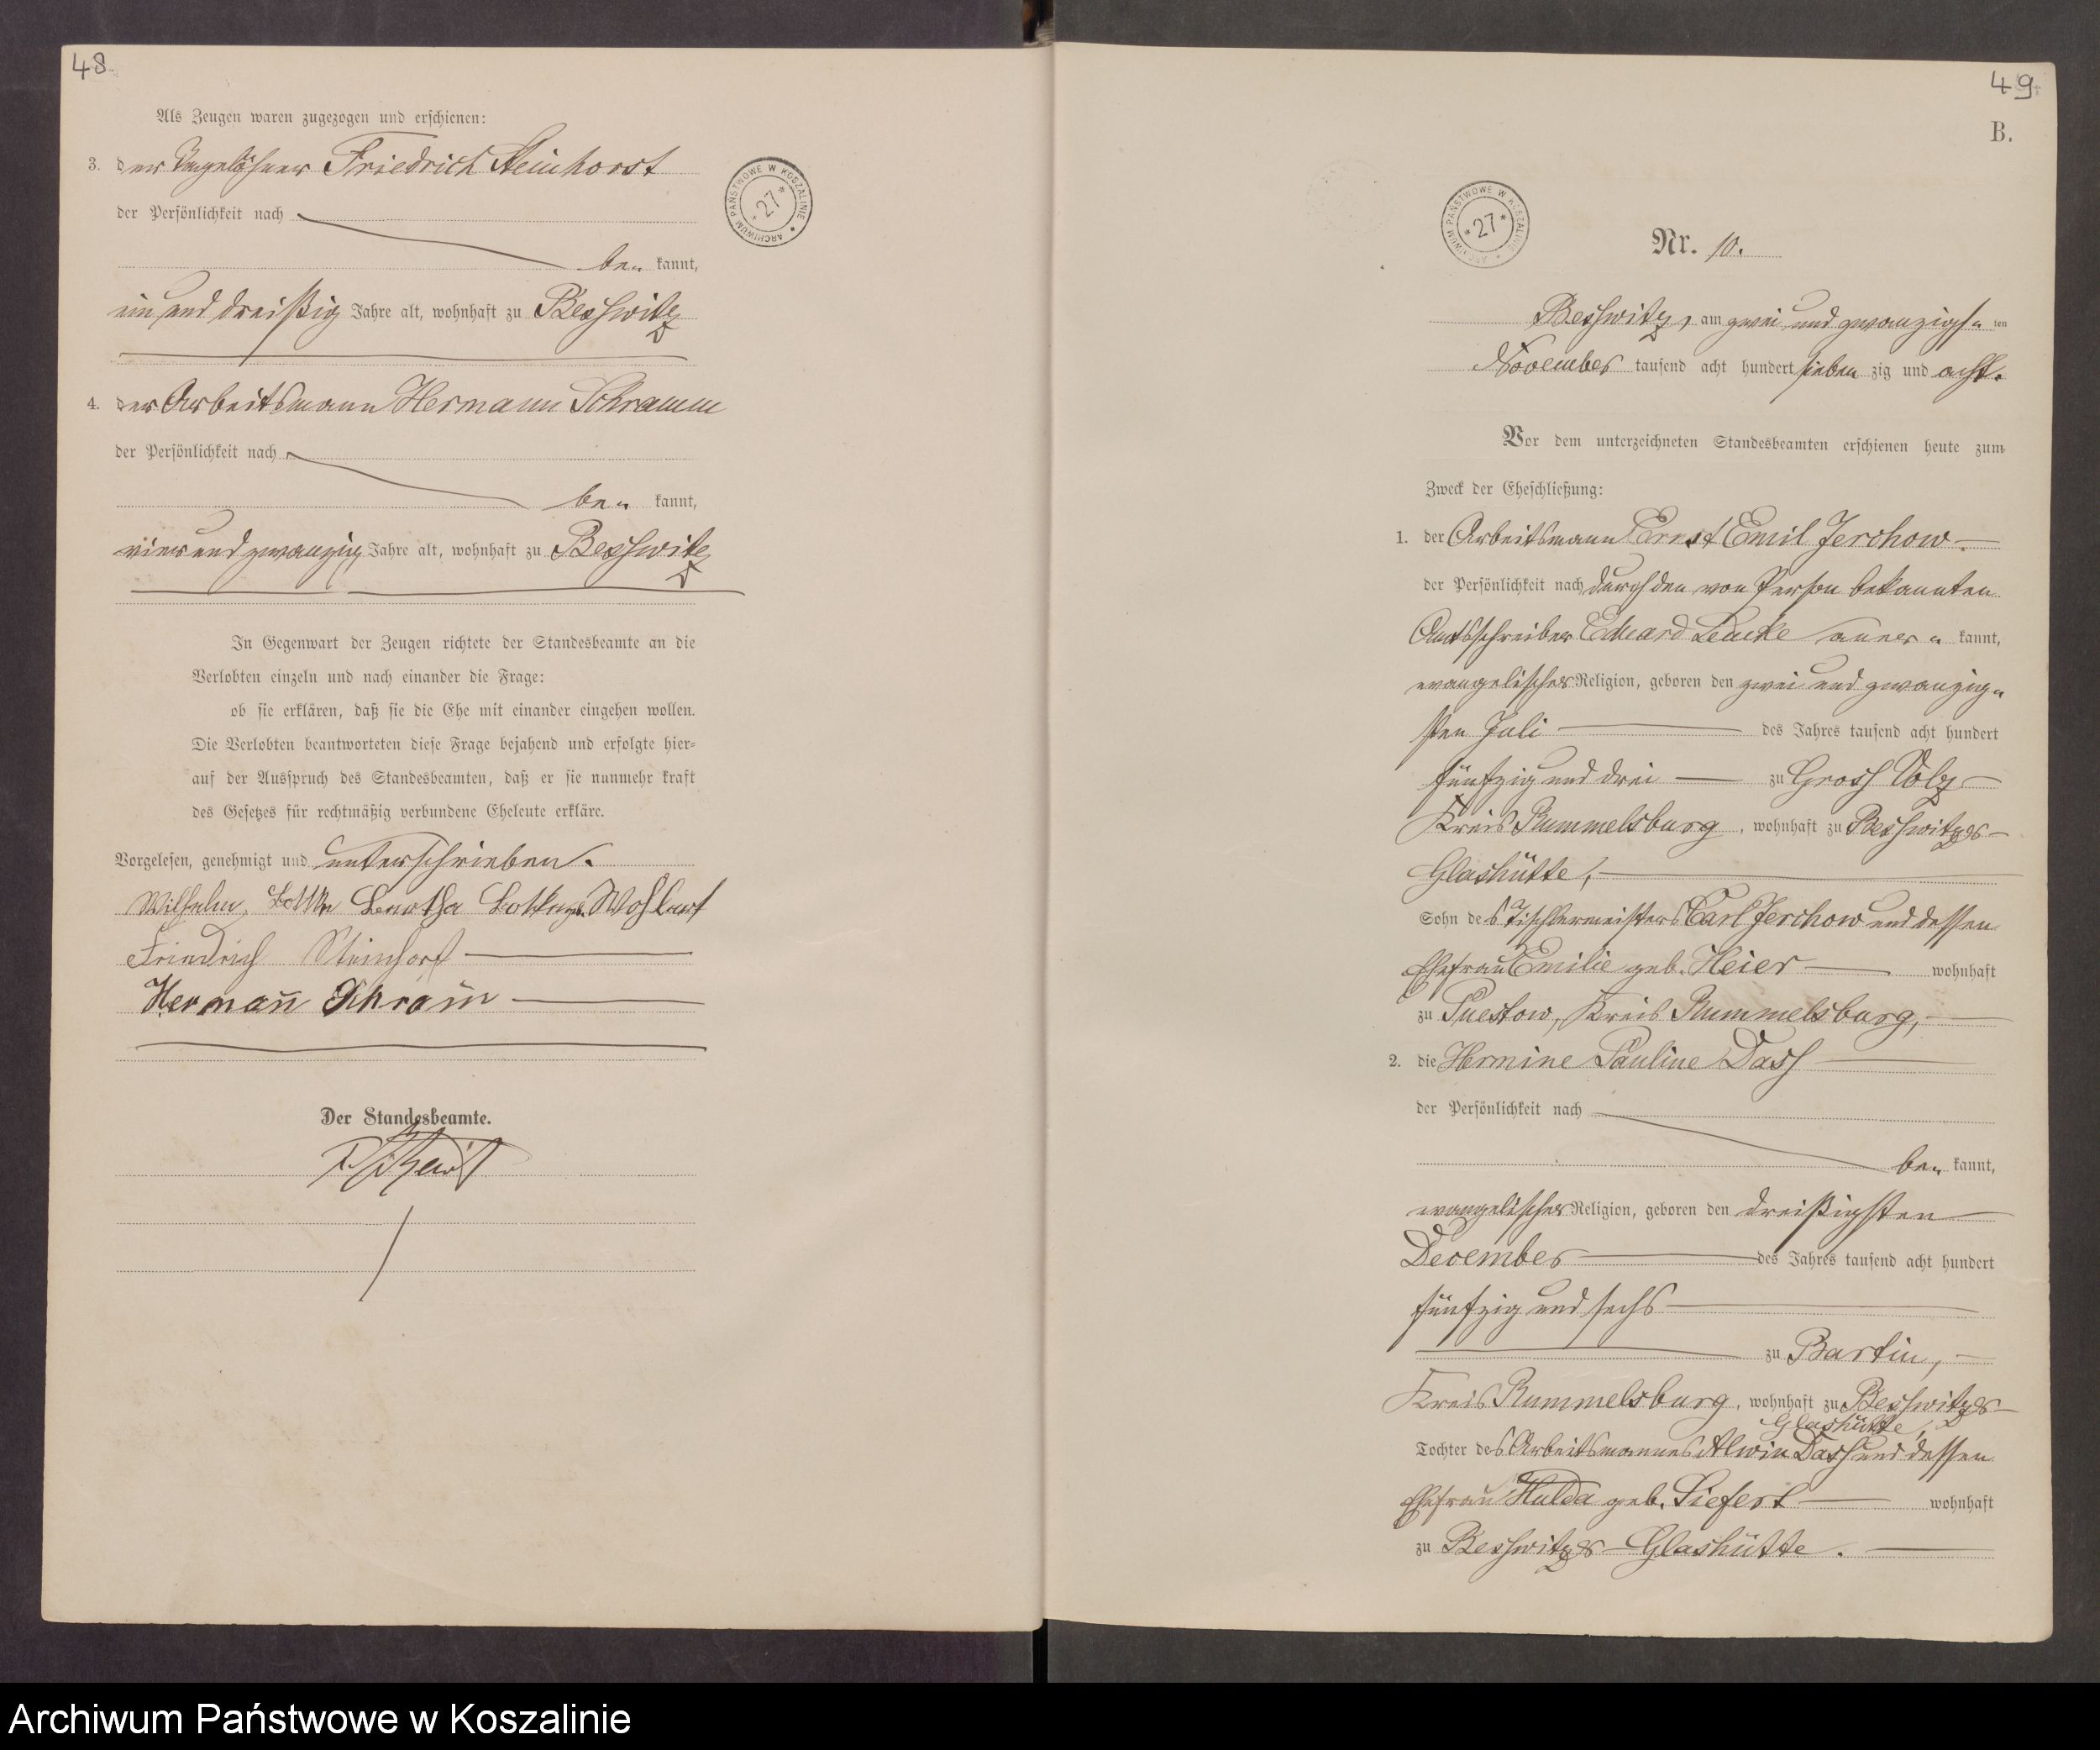 48.
Als Zeugen waren zugezogen und erschienen:
3. der Tagelöhner Friedrich Steinhorst
der Persönlichkeit nach
be„ kannt,
ein und dreißig Jahre alt, wohnhaft zu Besswitz
4. der Arbeitsmann Hermann Schramm
der Persönlichkeit nach
be„ kannt,
vier und zwanzig Jahre alt, wohnhaft zu Besswitz
In Gegenwart der Zeugen richtete der Standesbeamte an die
Verlobten einzeln und nach einander die Frage:
ob sie erklären, daß sie die Ehe mit einander eingehen wollen.
Die Verlobten beantworteten diese Frage bejahend und erfolgte hier-
auf der Ausspruch des Standesbeamten, daß er sie nunmehr kraft
des Gesetzes für rechtmäßig verbundene Eheleute erkläre.
Vorgelesen, genehmigt und unterschrieben.
Wilhelm
Friedrich Steinhorst
Hermann̄ Schram̄
Der Standesbeamte.
ARCHIWUM PAŃSTWOWE W KOSZALINIE
* 27 *
49
B.
ARCHIWUM PAŃSTWOWE W KOSZALINIE
* 27 *
Nr. 10.
Besswitz, am zwei und zwanzigs„ten
November tausend acht hundert siebenzig und acht.
Vor dem unterzeichneten Standesbeamten erschienen heute zum
Zweck der Eheschließung:
1. der Arbeitsmann Ernst Emil Jerchow
der Persönlichkeit nach durch den von Person bekannten
Amtsschreiber Eduard aner„ kannt,
evangelischer Religion, geboren den zwei und zwanzig„
sten Juli des Jahres tausend acht hundert
fünfzig und drei zu Gross Volz
Kreis Rummelsburg, wohnhaft zu Besswitzer-
Glashütte,
Sohn des Tischlermeisters Carl Jerchow und dessen
Ehefrau Emilie geb. Heier wohnhaft
zu Puestow, Kreis Rummelsburg,
2. die Hermine Pauline Dass
der Persönlichkeit nach
be„ kannt,
evangelischer Religion, geboren den dreißigsten
December des Jahres tausend acht hundert
fünfzig und sechs
zu Bartin,
Kreis Rummelsburg, wohnhaft zu Besswitzer-
Glashütte,
Tochter des Arbeitsmannes Alwin Dass und dessen
Ehefrau Hulda geb. Siefert wohnhaft
zu Besswitzer-Glashütte.
Archiwum Państwowe w Koszalinie